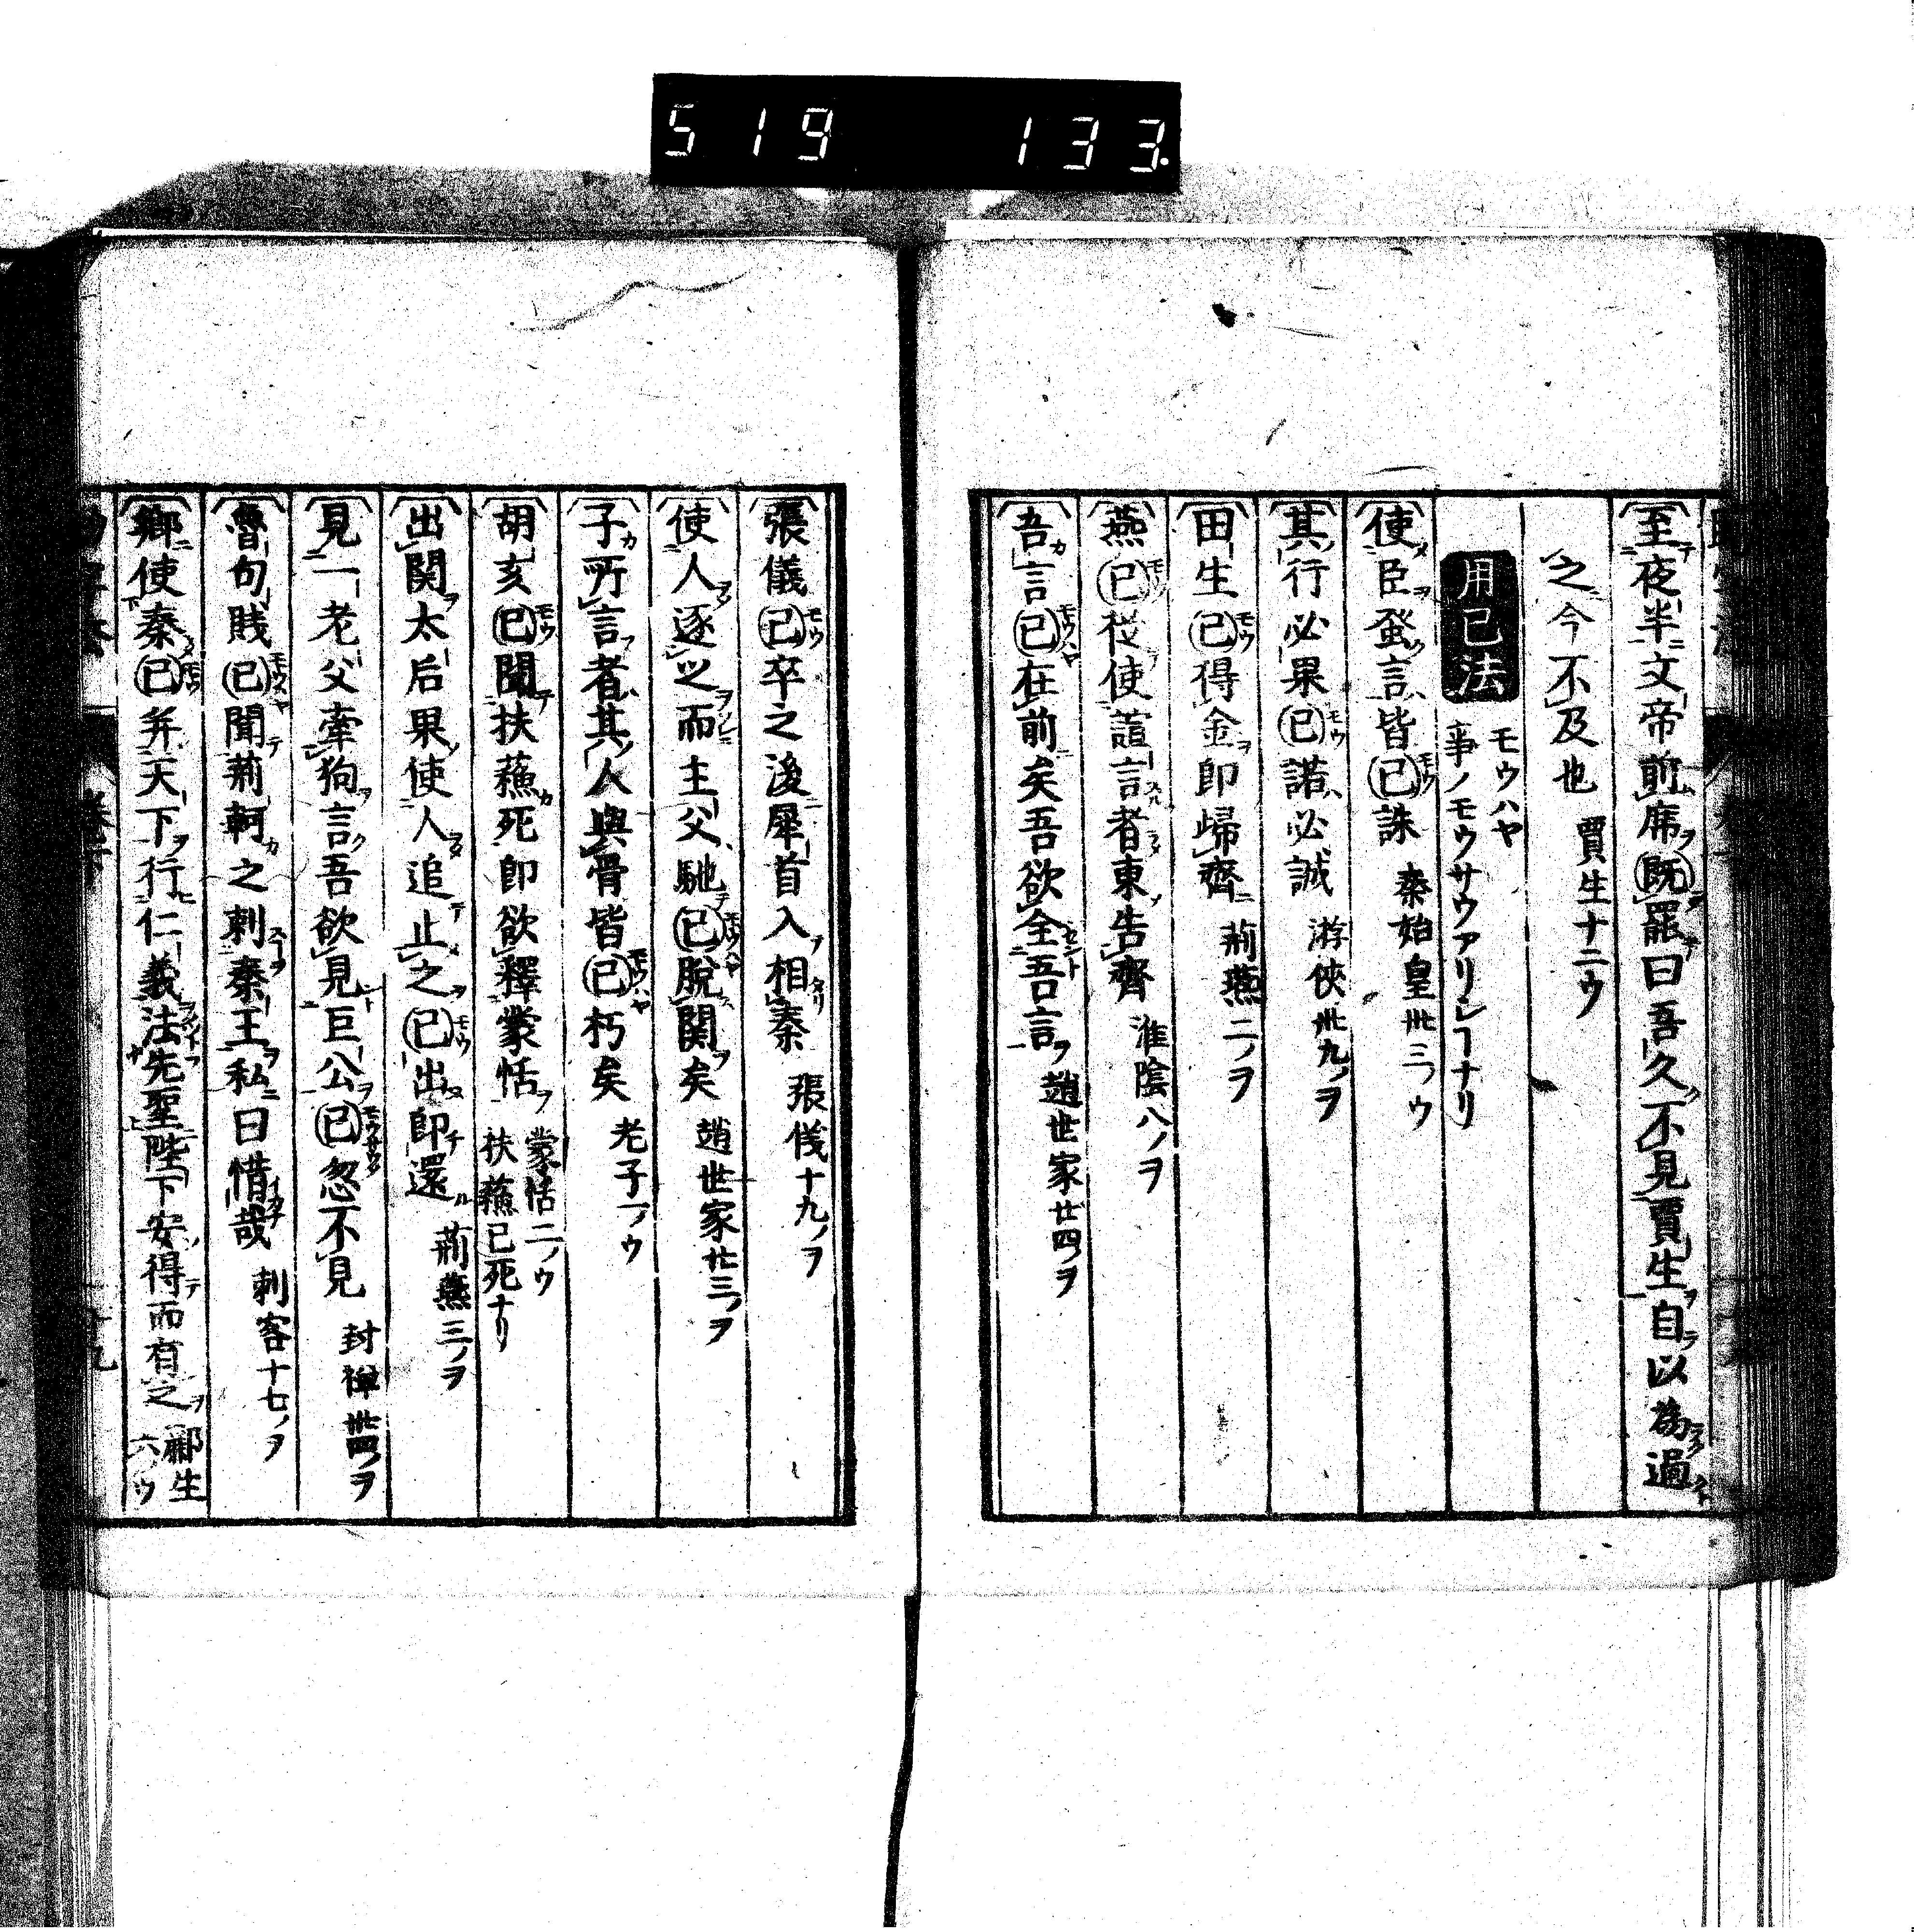 519 133.
至夜半文帝前席既罷曰吾久不見賈生自以為過
之今不及也 賈生十二ウ
用已法 モウハヤ 事ノモウサウアリシヿナリ
使臣發言皆已誅 秦始皇卅三ノウ
其行必果已諾必誠 游俠卅九ノヲ
田生已得金即歸齊 荊燕二ノヲ
燕已從使諠言者東告齊 淮陰八ノヲ
吾言已在前矣吾欲全吾言 趙世家廿四ノヲ
張儀已卒之後犀首入相秦 張儀十九ノヲ
使人逐之而主父馳已脫関矣 趙世家廿三ノヲ
子所言者其人與骨皆已朽矣 老子一ノウ
胡亥已聞扶蘇死即欲釋蒙恬 蒙恬二ノウ 扶蘇已死ナリ
出関太后果使人追止之已出即還 荊燕三ノヲ
見一老父牽狗言吾欲見巨公已忽不見 封禪卅四ノヲ
魯句賤已聞荊軻之刺秦王私曰惜哉 刺客十七ノヲ
鄉使秦已并天下行仁義法先聖陛下安得而有之 酈生六ノウ